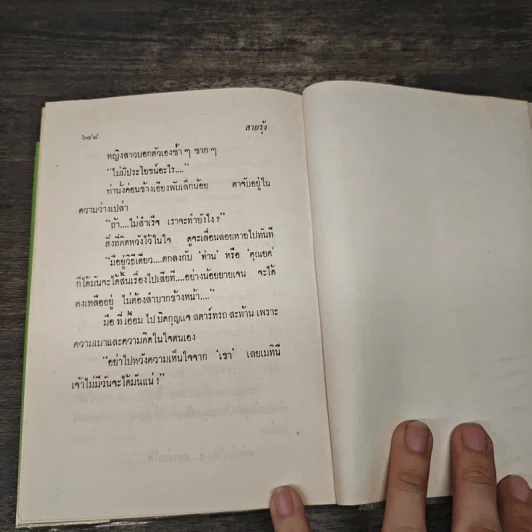 ๖๔๘ สายรุ้ง
หญิงสาวบอกตัวเองซ้ำๆ ซากๆ
"ไม่มีประโยชน์อะไร...."
ท่านั่งค่อนข้างเอียงพับเล็กน้อย ตาจับอยู่ใน
ความว่างเปล่า
"ถ้า....ไม่สำเร็จ เราจะทำยังไง ?"
สิ่งที่คิดหวังไว้ในใจ ดูจะเลื่อนลอยหายไปทันที
"มีอยู่วิธีเดียว....ตกลงกับ 'ท่าน' หรือ 'คุณยศ'
ก็ได้มันจะได้สิ้นเรื่องไปเสียที....อย่างน้อยยายเจน จะได้
คงเหลืออยู่ ไม่ต้องลำบากข้างหน้า...."
มือ ที่ เอื้อม ไป บิดกุญแจ สตาร์ทรถ สะท้าน เพราะ
ความเมาและความคิดในใจตนเอง
"อย่าไปหวังความเห็นใจจาก 'เขา' เลยเมทินี
เจ้าไม่มีวันจะได้มันแน่ !"